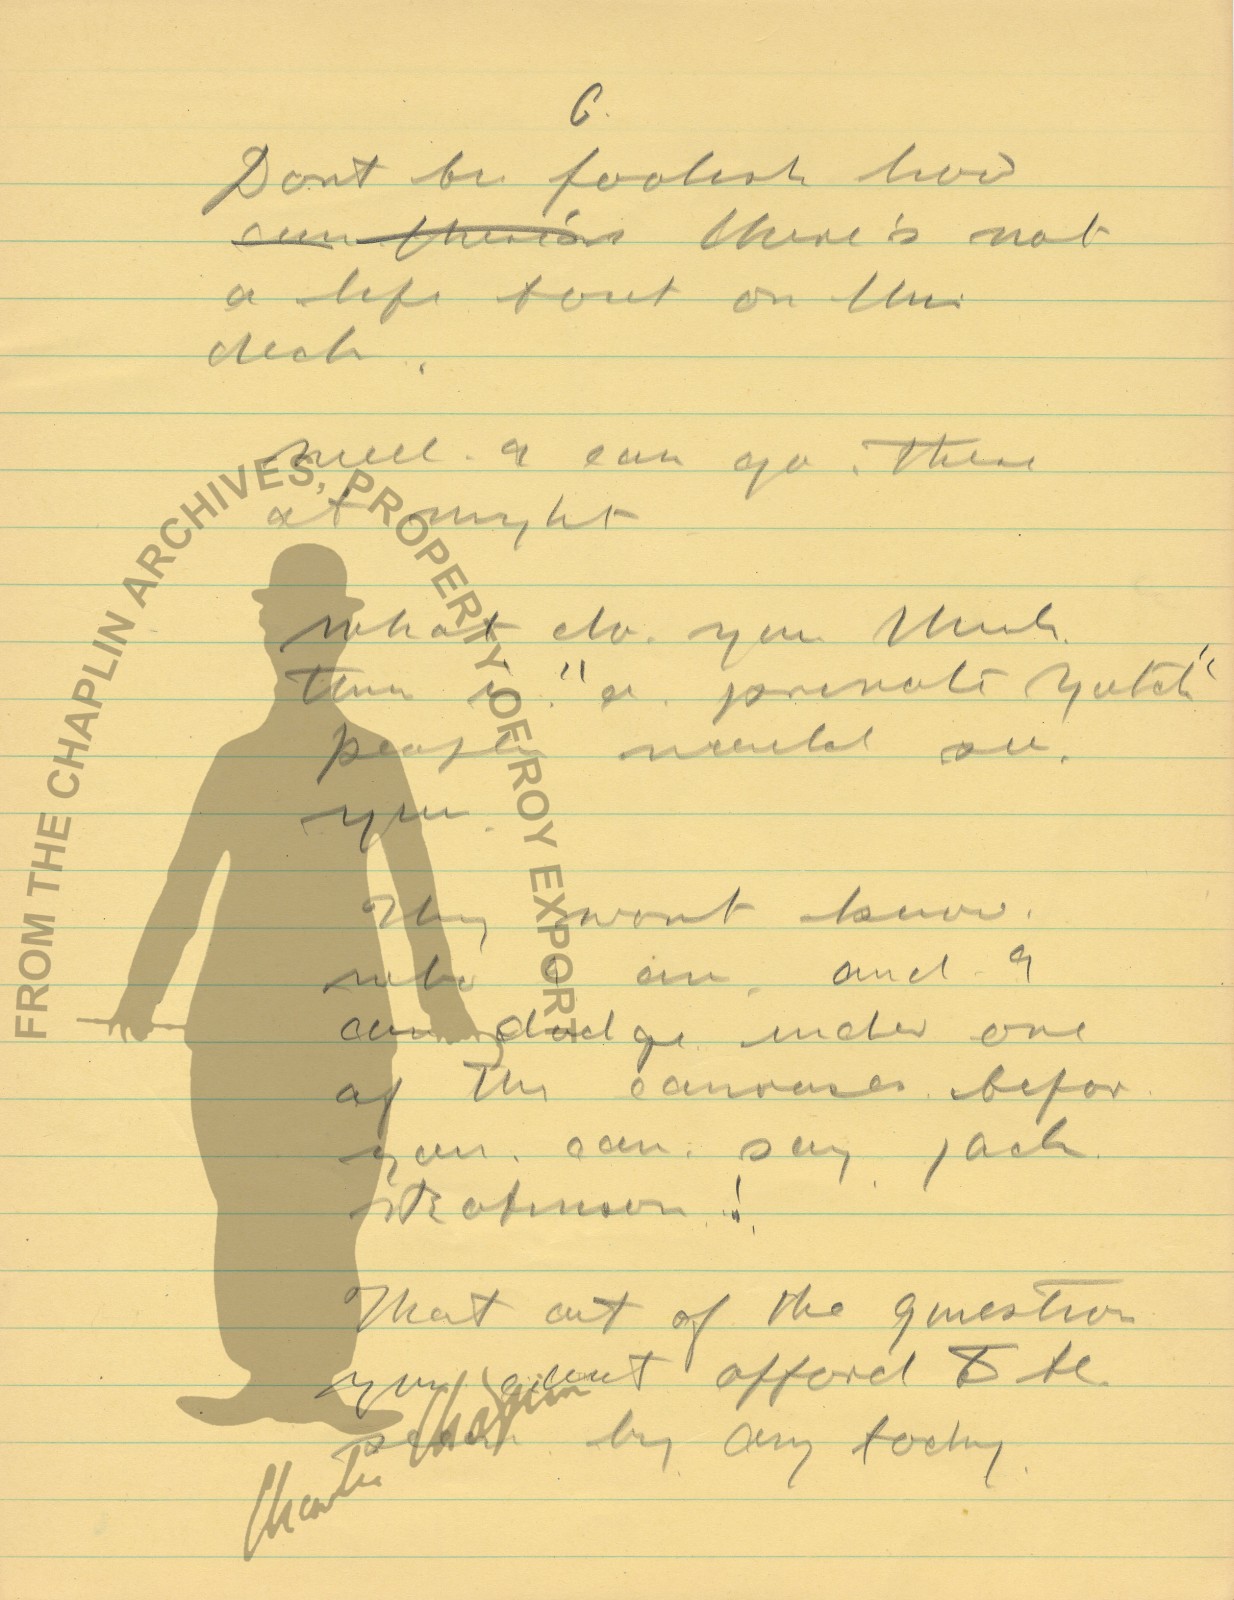 6.
Dont be foolish how
can there's there's not
a life bout on this
deck.
well. I can go. there
at night
what do. you think.
this is. "a. private Yatch"
people would see.
you.
They wont know.
who I am. and I
can dodge under one
of the canvases. befor.
you. can. say jack.
Robinson!
That out of the question
you cant afford to be.
seen by any body.
FROM THE CHAPLIN ARCHIVES, PROPERTY OF ROY EXPORT
Charlie Chaplin